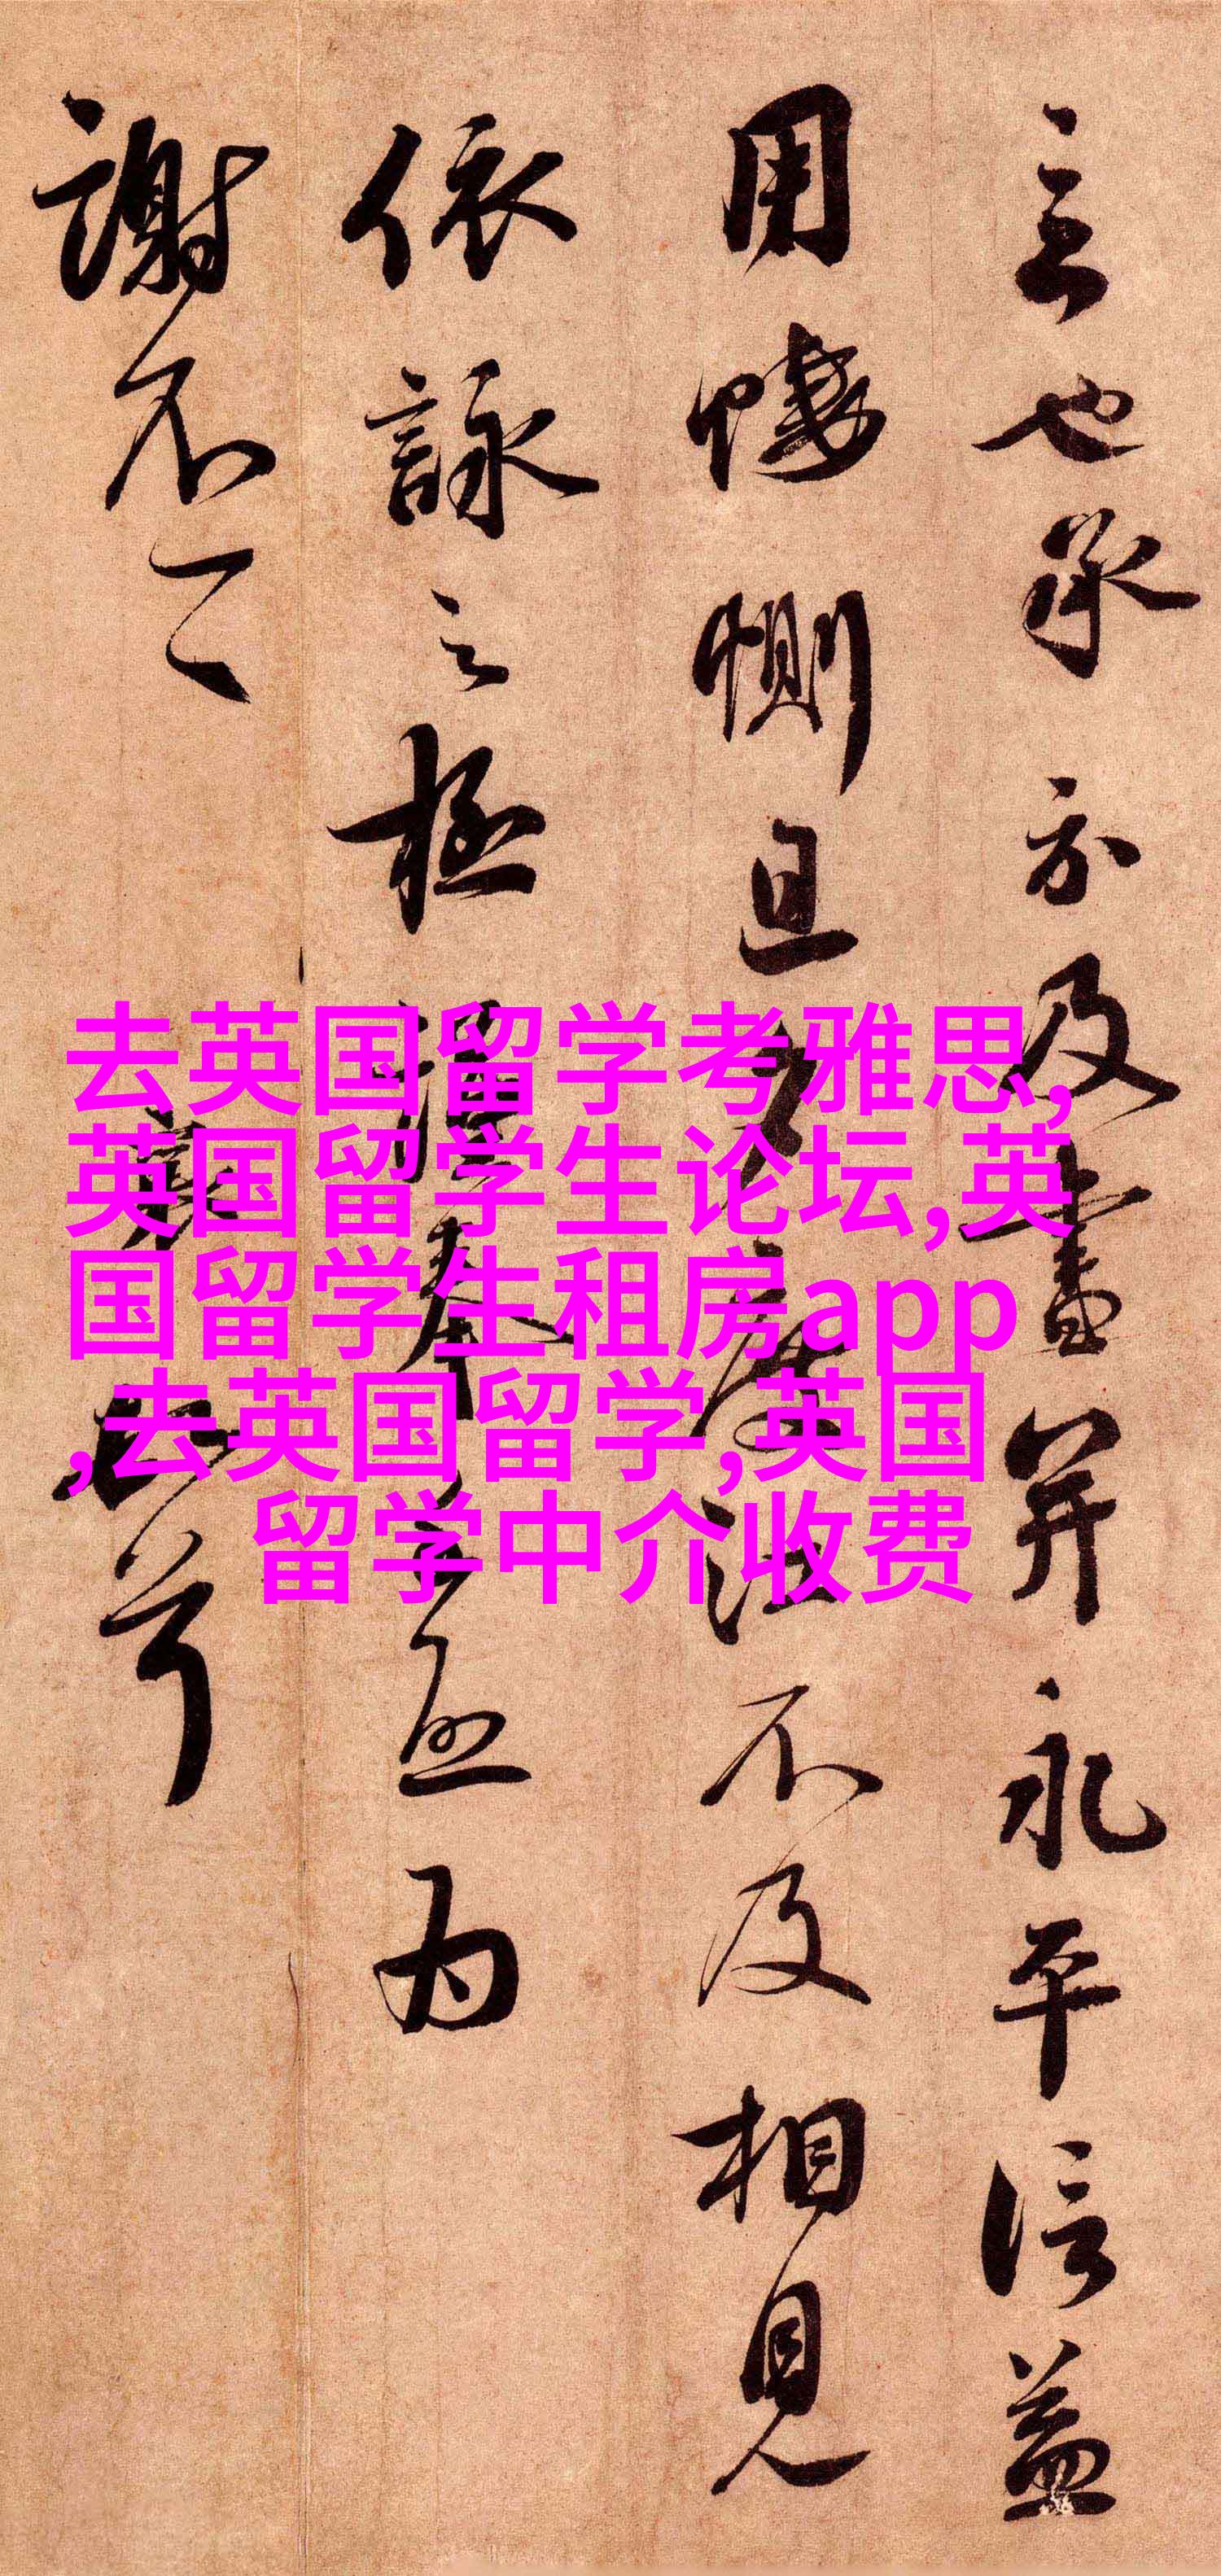 立也承示及書并永平信益
用悽惻且
不及相見
依詠之極謹奉
為
謝不一
去英国留学考雅思,
英国留学生论坛,英
国留学生租房app
,去英国留学,英国
留学中介收费